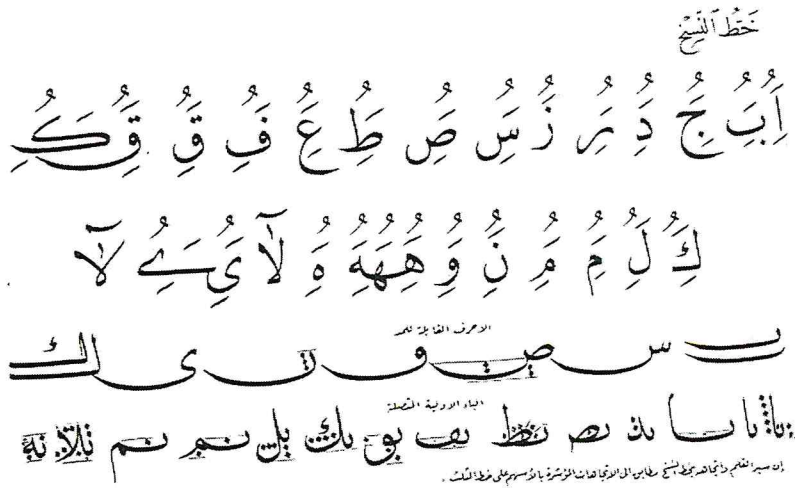 خَطُّ النَّسْخِ
اَُِ بَُِ جَُِ دَُِ رَُِ زَُ سَُِ صَُِ طَُِ عَُِ فَُِ قَُِ قَُِ كَُ
كَُِ لَُِ مَُِ مَُِ نَُِ وَُِ هَُِهَُِهَُِ هَُِ لآ يَُِ ےَُِ لآ
الاحرف القابلة للمد
ب س ص ت و ت ى ك
الباء الاولية المتصلة
بد بص بط بف بو بك بل بم بم بلا به
إن سير القلم واتجاهه بخط النسخ مطابق الى الاتجاهات المؤشرة بالأسهم على خط الثلث .